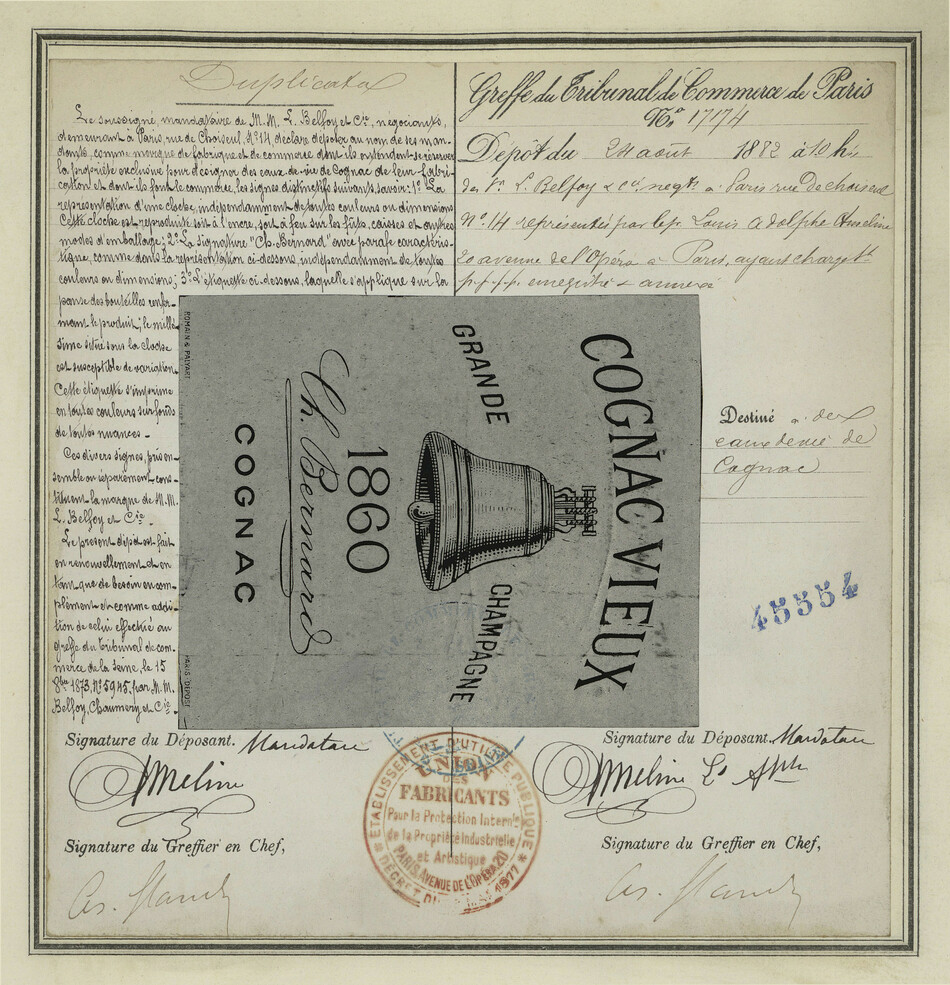 Duplicata
Le soussigné, mandataire de M.M. L. Belfoy et Cie, négociants,
demeurant à Paris, rue de Choiseul, N° 14 déclare déposer au nom de ses man-
dants, comme marque de fabrique et de commerce dont ils entendent se réserver
la propriété exclusive pour désigner des eaux-de-vie de Cognac de leur fabri-
cation et dont ils font le commerce, les signes distinctifs suivants, savoir: 1° La
représentation d'une cloche, indépendamment de toutes couleurs ou dimensions
Cette cloche est reproduite soit à l'encre, soit à feu sur les fûts, caisses et autres
modes d'emballage; 2° La signature "Ch. Bernard" avec parafe caractéris-
tique, comme dans la représentation ci-dessous, indépendamment de toutes
couleurs ou dimensions; 3° L'étiquette ci-dessous, laquelle s'applique sur la
panse des bouteilles renfer-
mant le produit; le millé-
sime situé sous la cloche
est susceptible de variation.
Cette étiquette s'imprime
en toutes couleurs sur fonds
de toutes nuances.-
Ces divers signes, pris en-
semble ou séparément cons-
tituent la marque de M.M.
L. Belfoy et Cie.-
Le présent dépôt est fait
en renouvellement et en
tant que de besoin en com-
plément et comme addi-
tion de celui effectué au
greffe du tribunal de com-
merce de la Seine, le 15
8bre 1873, N° 5945, par M.M.
Belfoy, Chaumery et Cie.-
Greffe du Tribunal de Commerce de Paris
N° 17174
Dépôt du 24 août 1882 à 10 h
des Sr L. Belfoy & Cie negts à Paris rue de choiseul
N° 14 représentés par le sr Louis Adolphe Ameline
20 avenue de l'Opéra à Paris, ayant charge
p.f.f.p. enregistré & annexé
ROMAIN & PALYART
PARIS DÉPOSÉ
COGNAC VIEUX
GRANDE
CHAMPAGNE
1860
Ch. Bernard
COGNAC
Destiné à des
eaux de vie de
Cognac
45554
Signature du Déposant. Mandataire
Signature du Greffier en Chef,
Signature du Déposant. Mandataire
Signature du Greffier en Chef,
ÉTABLISSEMENT D'UTILITÉ PUBLIQUE
UNION
DES
FABRICANTS
Pour la Protection Internle
de la Propriété Industrielle
et Artistique
PARIS, AVENUE DE L'OPÉRA, 20
DÉCRET DU 1877